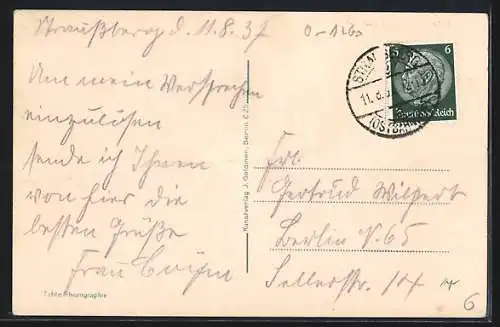 Straußberg d. 11.8.37
0-1260
Um mein Versprechen
einzulösen
sende ich Ihnen
von hier die
besten Grüße
Frau
Echte Photographie
Kunstverlag J. Goldiner, Berlin C 25
6
Deutsches Reich
11.8.
(OSTBAHN)
Frl.
Gertrud Wilpert
Berlin N. 65
Sellerstr. 14
6